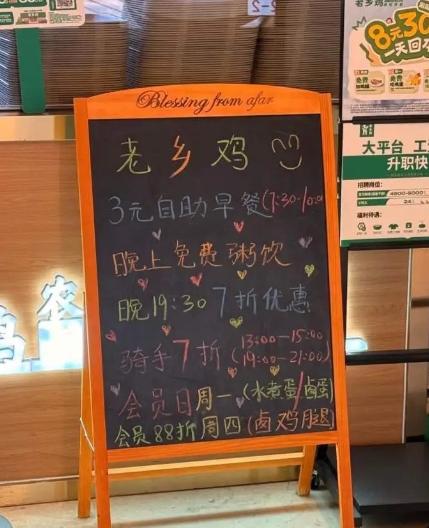 Blessing from afar
老乡鸡
3元自助早餐(7:30-10:00
晚上免费粥饮
晚19:30 7折优惠
骑手7折(13:00-15:00
19:00-21:00)
会员日周一(水煮蛋/卤蛋)
会员88折周四(卤鸡腿)
老乡鸡
8元30
一天回本
大平台 工
升职快
招聘岗位:
福利待遇: